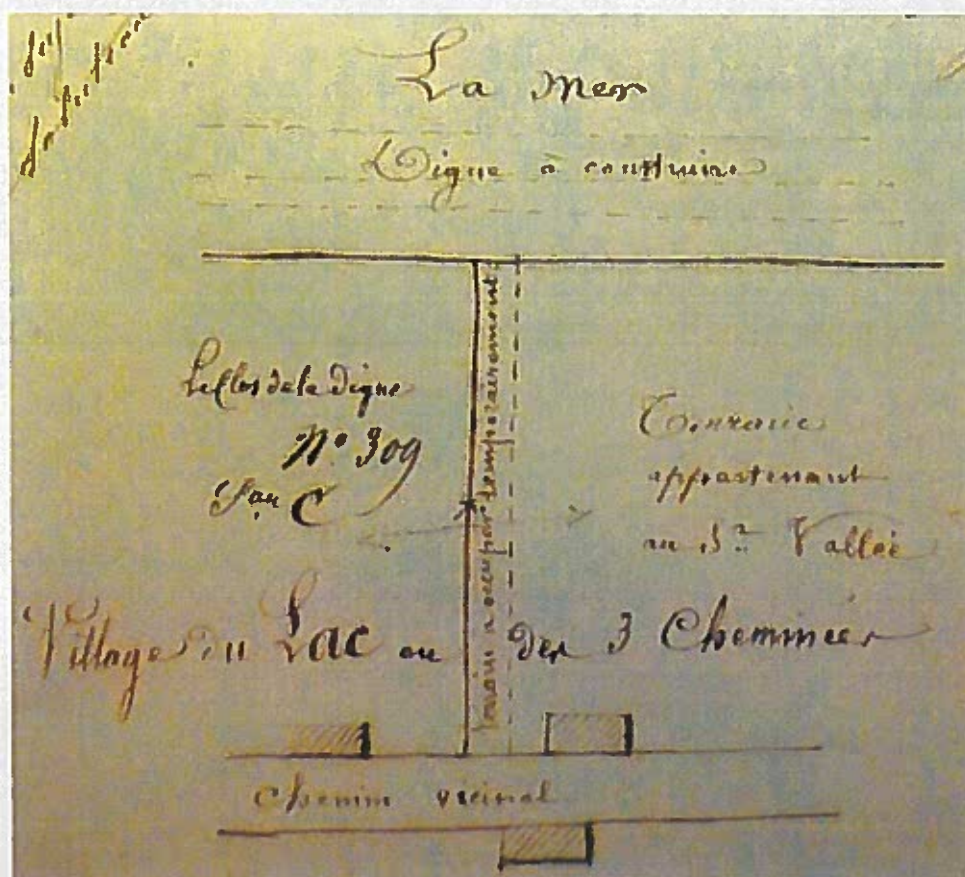 La Mer
Digne à construire
Le Clos de la Digue
N° 309
Son C
Terrain à occuper temporairement
appartenant
au Sr Vallée
Village du Lac ou des 3 Cheminées
Chemin vicinal